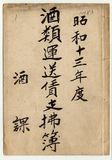 昭和十三年度
酒類運送賃支拂簿
酒課